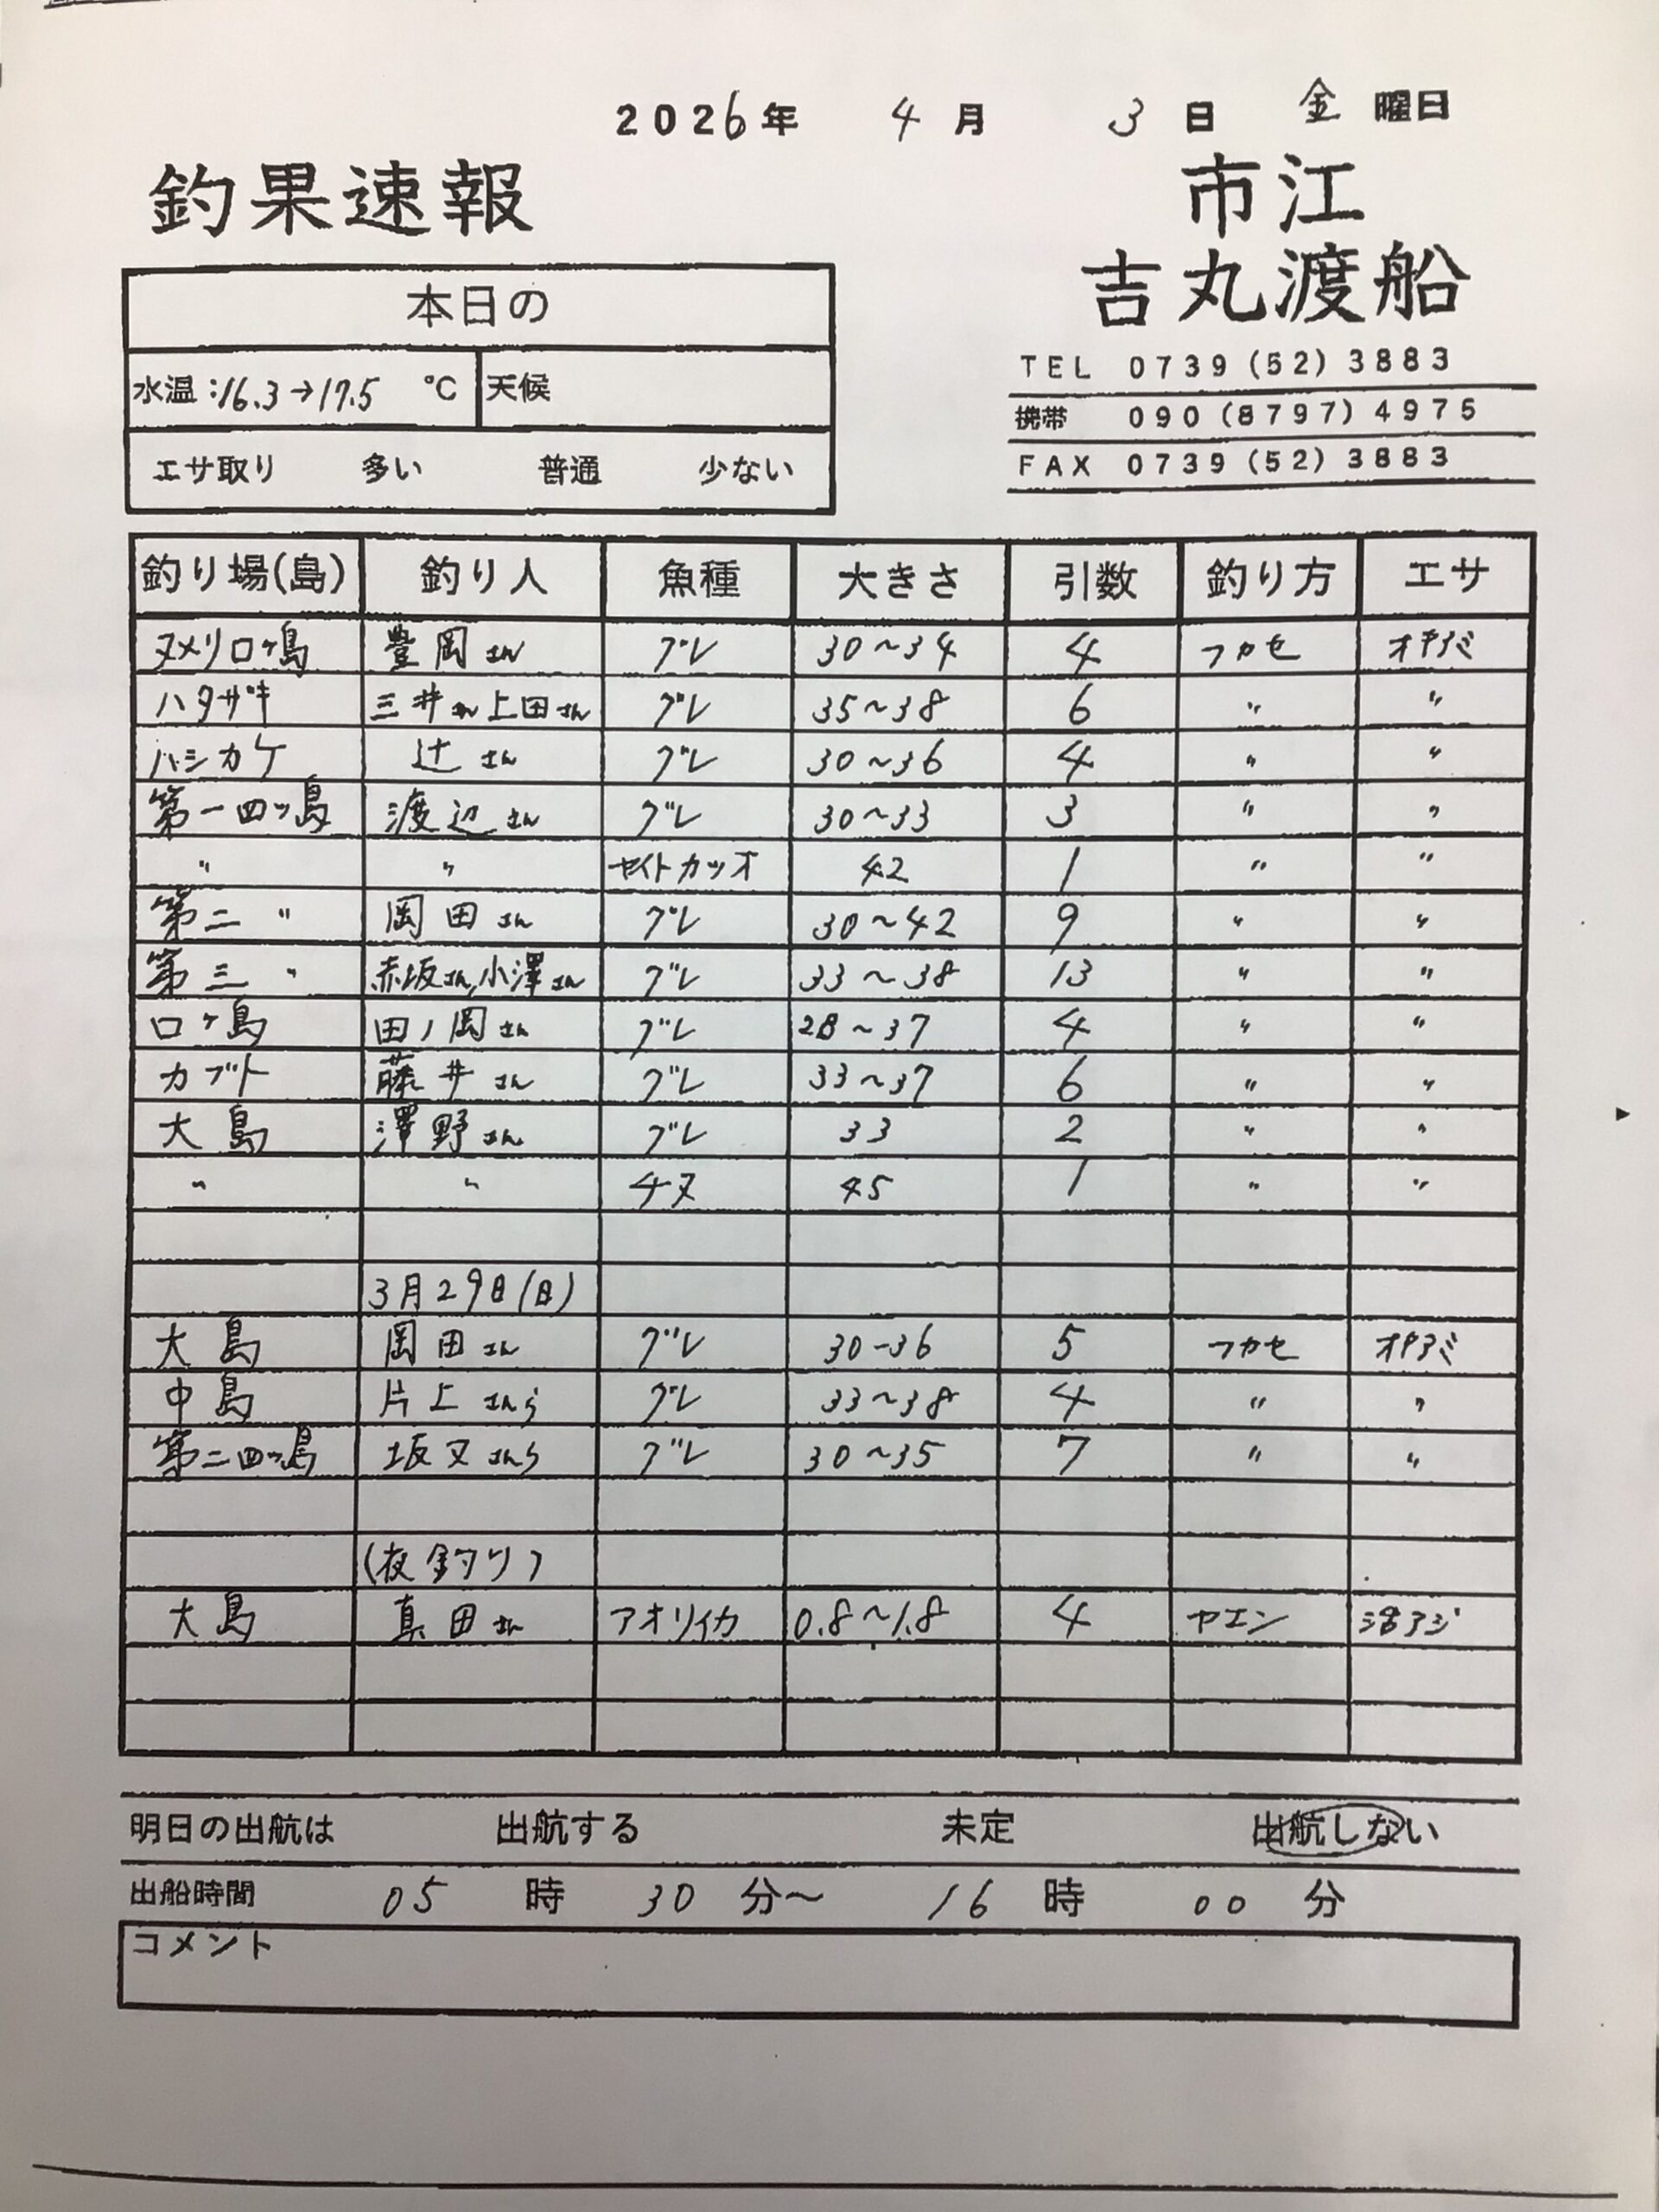 2026年 4月 3日 金曜日
釣果速報
市江
吉丸渡船
本日の
水温:16.3→17.5 ℃ 天候
エサ取り 多い 普通 少ない
TEL 0739(52)3883
携帯 090(8797)4975
FAX 0739(52)3883
釣り場(島) 釣り人 魚種 大きさ 引数 釣り方 エサ
ヌメリロヶ島 豊岡さん グレ 30～34 4 フカセ オキアミ
ハタザキ 三井さん上田さん グレ 35～38 6 〃 〃
ハシカケ 辻さん グレ 30～36 4 〃 〃
第一四ッ島 渡辺さん グレ 30～33 3 〃 〃
〃 〃 セイトカツオ 42 1 〃 〃
第二 〃 岡田さん グレ 30～42 9 〃 〃
第三 〃 赤坂さん,小澤さん グレ 33～38 13 〃 〃
口ヶ島 田ノ岡さん グレ 28～37 4 〃 〃
カブト 藤井さん グレ 33～37 6 〃 〃
大島 澤野さん グレ 33 2 〃 〃
〃 〃 チヌ 45 1 〃 〃
3月29日(日)
大島 岡田さん グレ 30-36 5 フカセ オキアミ
中島 片上さんら グレ 33～38 4 〃 〃
第二四ッ島 坂又さんら グレ 30～35 7 〃 〃
(夜釣り)
大島 真田さん アオリイカ 0.8～1.8 4 ヤエン 活アジ
明日の出航は 出航する 未定 出航しない
出船時間 05時 30分～ 16時 00分
コメント